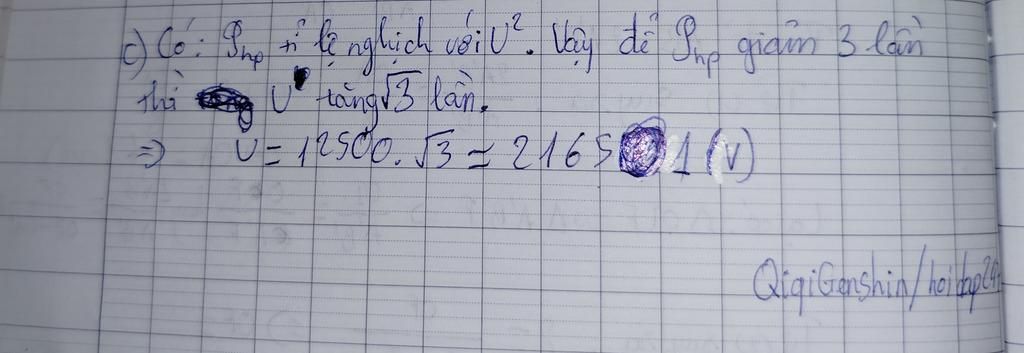 c) Có: 𝒫hp tỉ lệ nghịch với U². Vậy để 𝒫hp giảm 3 lần
thì U tăng √3 lần.
=> U = 12500.√3 ≃ 21651 (V)
QiqiGenshin/hoidap247